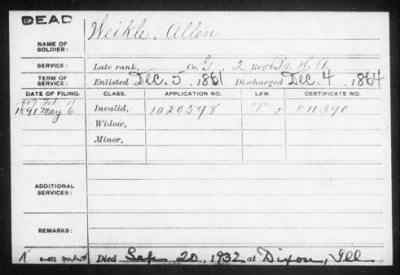 DEAD
NAME OF SOLDIER: Weikle, Allen
SERVICE: Late rank, Co. G, 2 Reg
TERM OF SERVICE: Enlisted Dec. 5, 1861 Discharged Dec. 4, 1864
DATE OF FILING. CLASS. APPLICATION NO. LAW. CERTIFICATE NO.
1907 Feb. 11
1891 May 6 Invalid, 1020598 811390
Widow,
Minor,
ADDITIONAL SERVICES:
REMARKS:
Died Sep 20, 1932 at Dixon, Ill